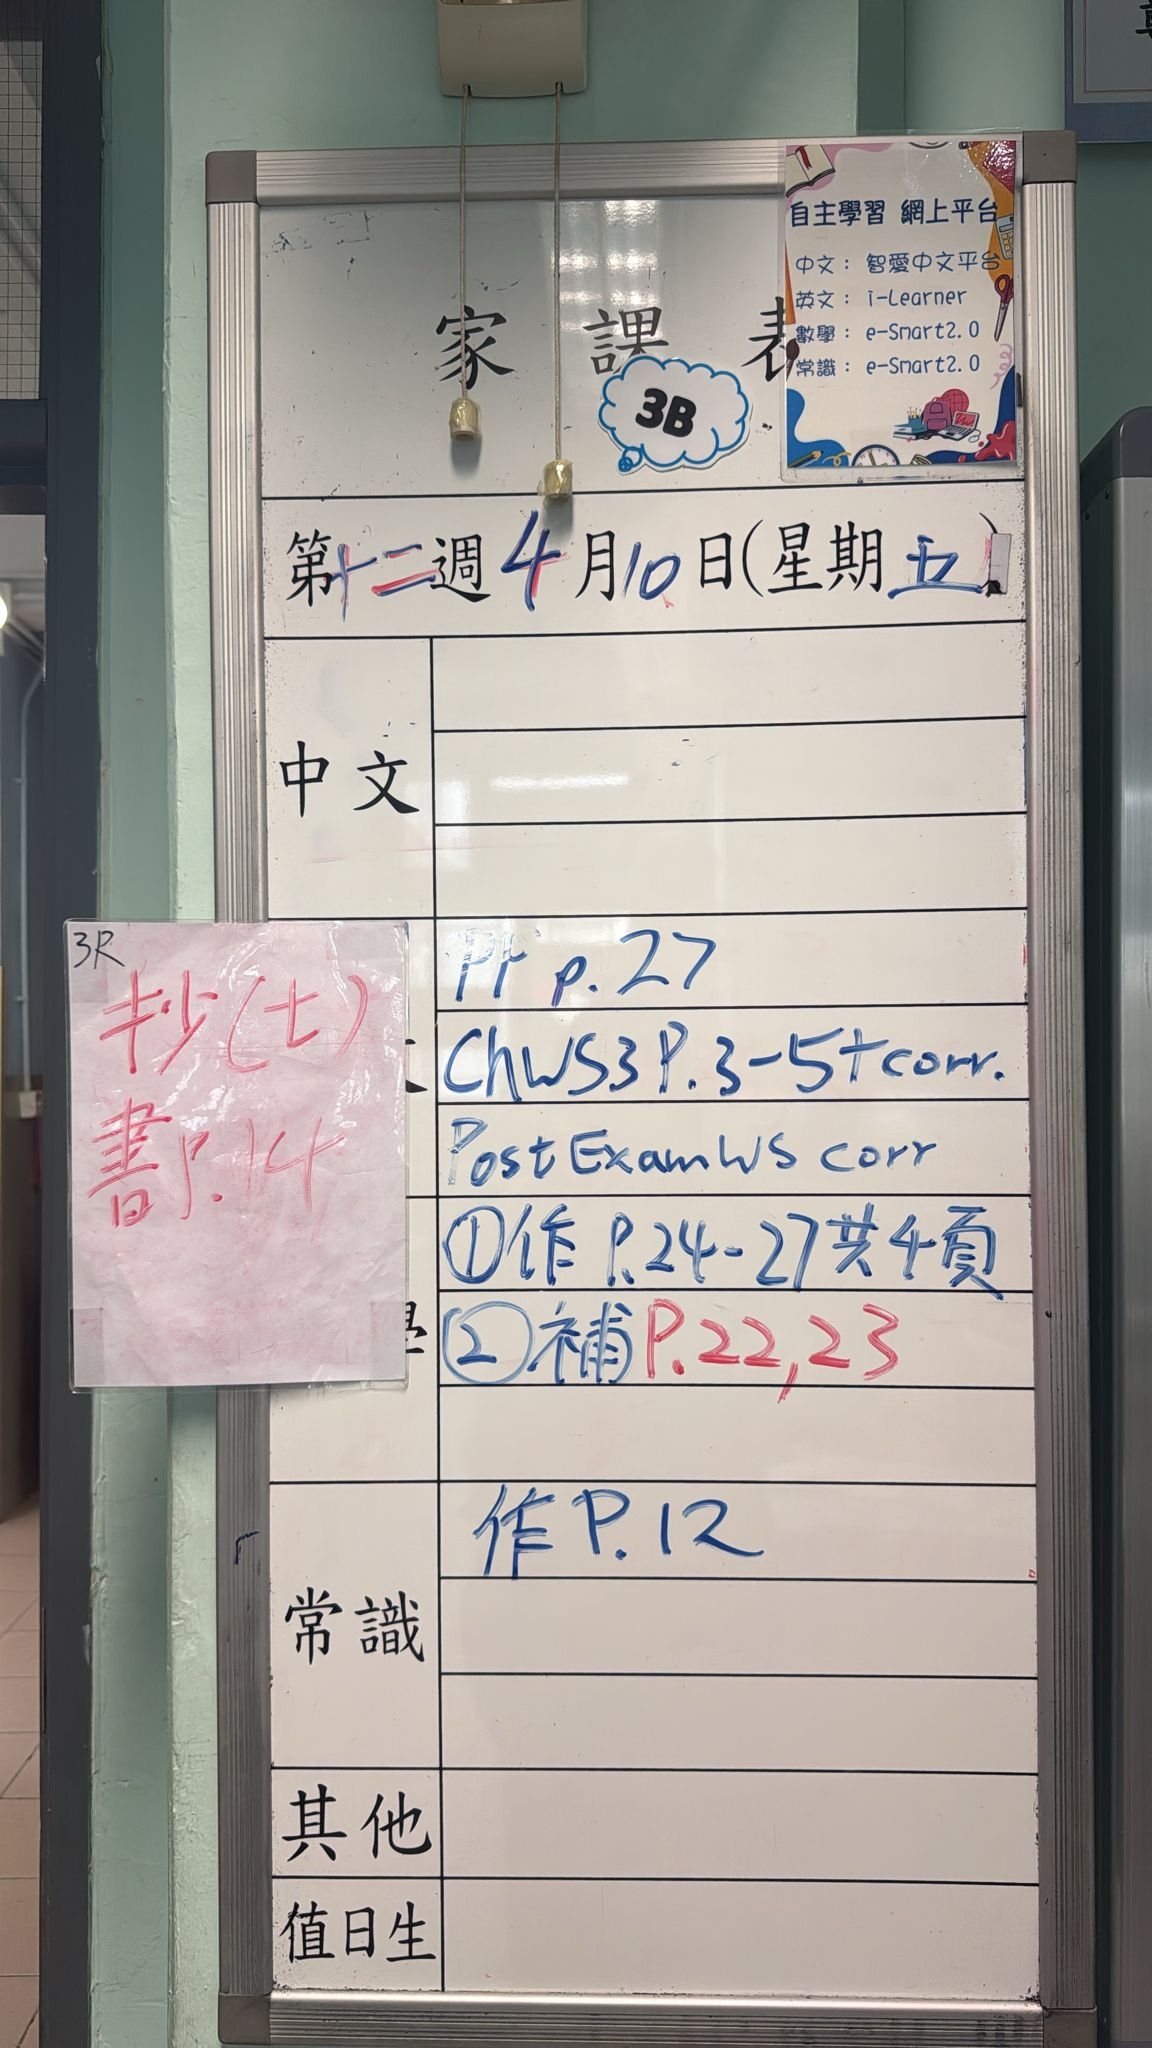 自主學習 網上平台
中文： 智愛中文平台
英文： i-Learner
數學： e-Smart2.0
常識： e-Smart2.0
家課表
3B
第十二週4月10日(星期五)
中文
3R
抄(七)
書P.14
p.27
ChWS3 P.3-5+corr.
Post Exam WS corr
①作 P.24-27共4頁
②補P.22,23
常識
作P.12
其他
值日生